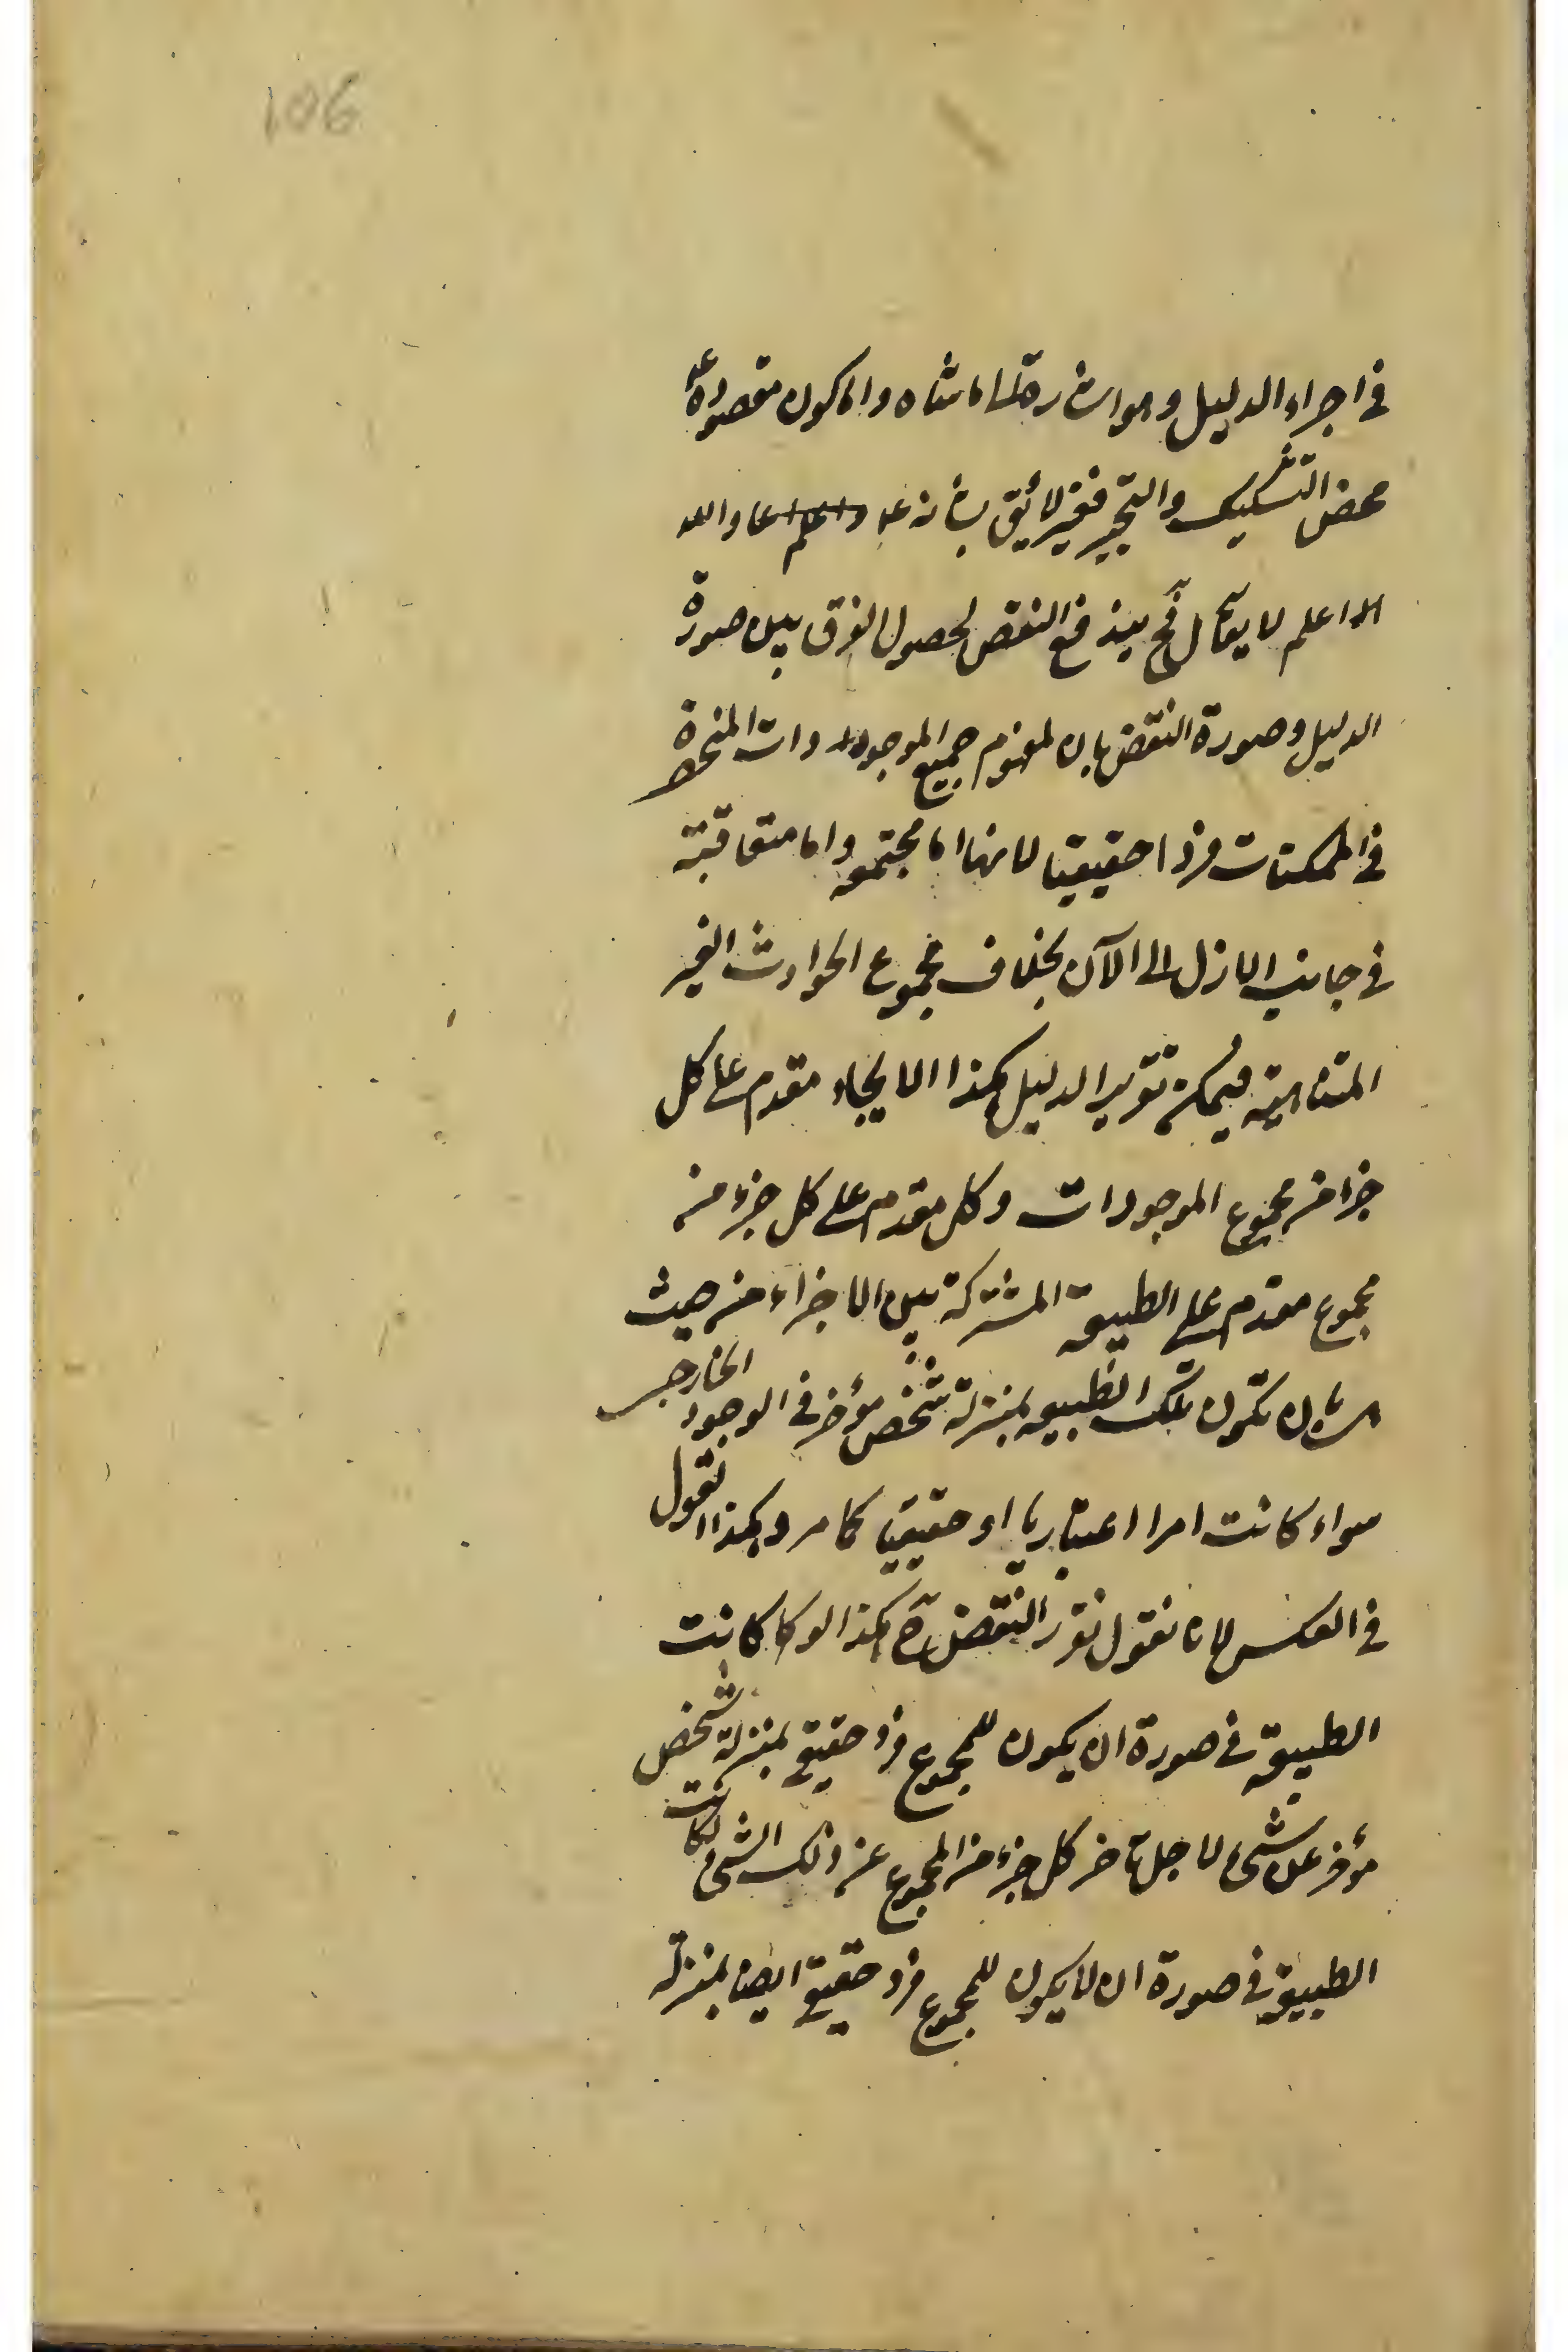 106
في اجراء الدليل وهو اشارة الى ما شاه واما كون مقصوده
محض التشكيك والتحير فغير لائق بشانه والله
اعلم لا يقال فح يندفع النقض لحصول الفرق بين صورة
الدليل وصورة النقض بان لمفهوم جميع الموجودات المنحصرة
في الممكنات فردا حقيقيا لانها اما مجتمعة واما متعاقبة
في جانب الازل الى الآن بخلاف مجموع الحوادث الغير
المتناهية فيمكن تقرير الدليل هكذا الايجاد مقدم على كل
جزء من مجموع الموجودات وكل مقدم على كل جزء من
مجموع مقدم على الطبيعة المشتركة بين الاجزاء من حيث
بان تكون تلك الطبيعة بمنزلة شخص مؤخر في الوجود الخارجي
سواء كانت امرا اعتباريا او حقيقيا كما مر وهكذا نقول
في العكس لانا نقول نقرر النقض هكذا لو كانت
الطبيعة في صورة ان يكون للمجموع فرد حقيقي بمنزلة شخص
مؤخر عن شيء لاجل تاخر كل جزء من المجموع عن ذلك الشيء لكانت
الطبيعة في صورة ان لا يكون للمجموع فرد حقيقي ايضا بمنزلة